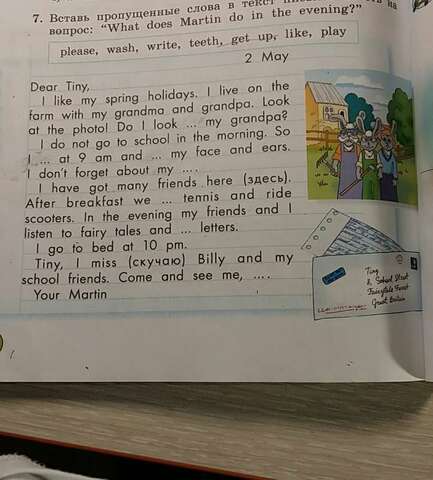 7. Вставь пропущенные слова в текст
вопрос: "What does Martin do in the evening?"
please, wash, write, teeth, get up, like, play
2 May
Dear Tiny,
I like my spring holidays. I live on the
farm with my grandma and grandpa. Look
at the photo! Do I look ... my grandpa?
I do not go to school in the morning. So
I ... at 9 am and ... my face and ears.
I don't forget about my ... .
I have got many friends here (здесь).
After breakfast we ... tennis and ride
scooters. In the evening my friends and I
listen to fairy tales and ... letters.
I go to bed at 10 pm.
Tiny, I miss (скучаю) Billy and my
school friends. Come and see me, ... .
Your Martin
Tiny
8, School Street
Fairytale Forest
Great Britain